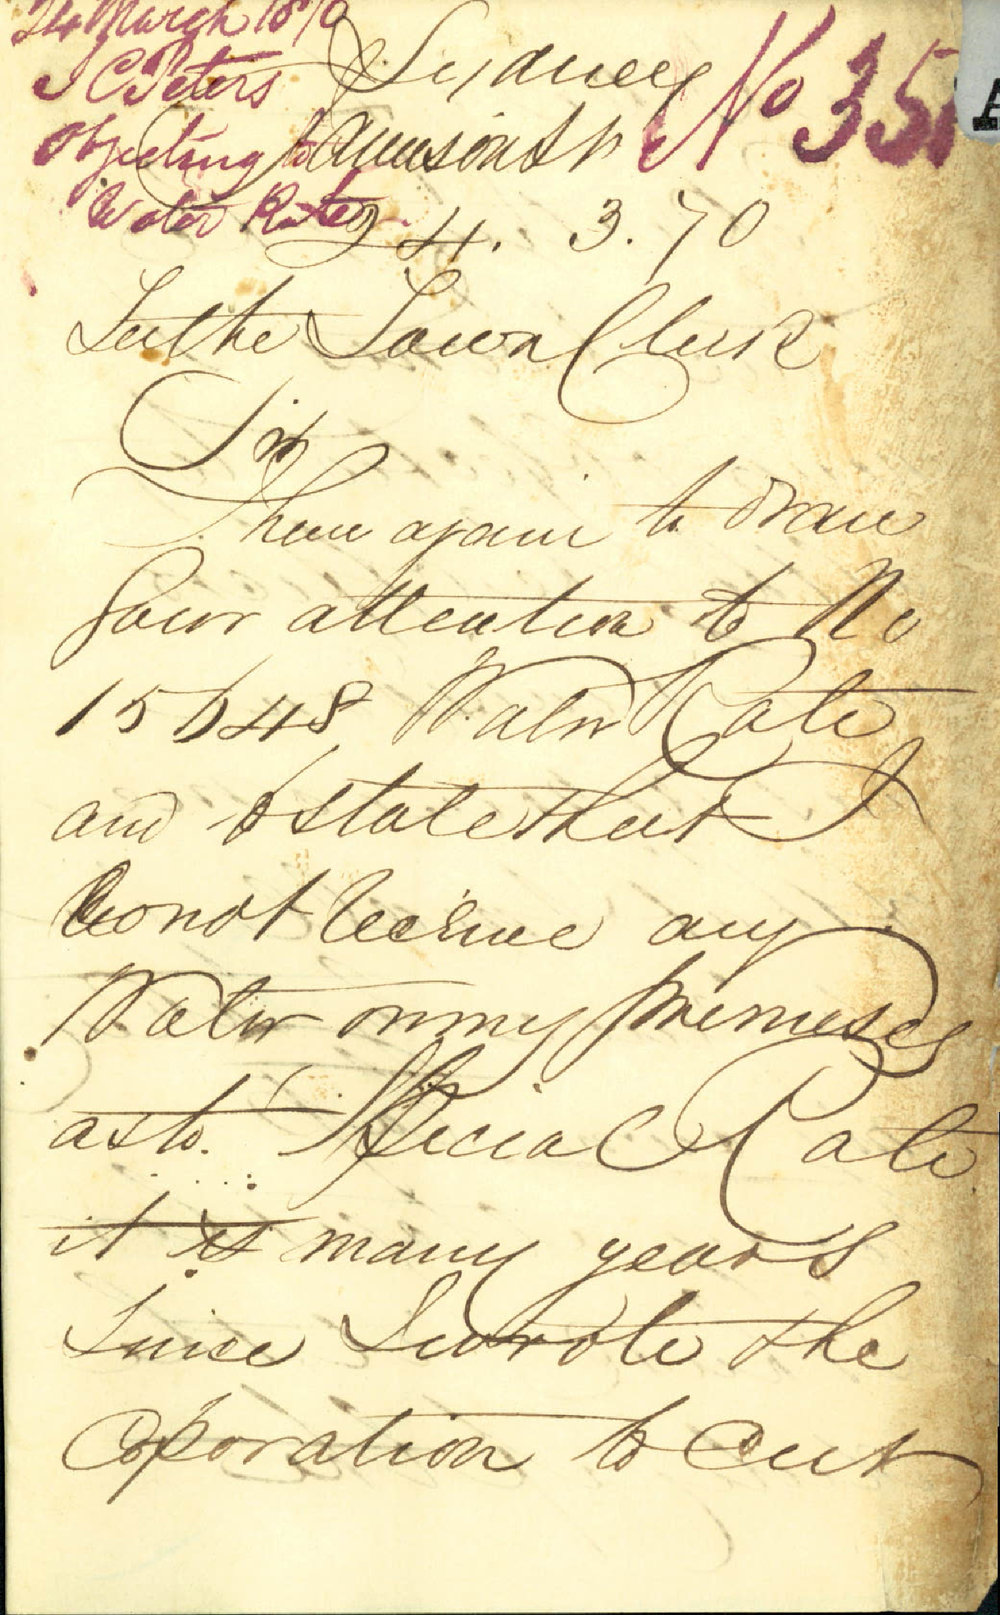 24 March 1870
J C Peters
Objecting to
Water Rates
No 35
Sydney
24. 3. 70
To the Town Clerk
Sir
I have again to draw
your attention to No
15648 Water Rate
and to state that I
do not recieve any
Water on my premises
as to Special Rate
it is many years
since I wrote the
Coporation to cut